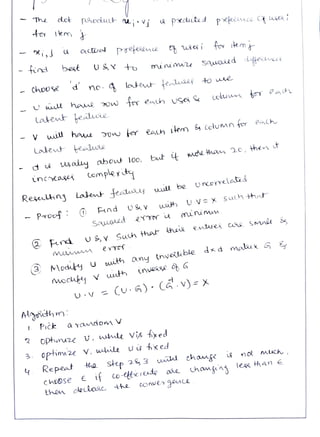 - The dot product ui·vj is predicted preference of user i
for item j
- xi,j is actual preference of user i for item j
- find best U & V to minimize squared difference
- choose 'd' no. of latent features to use
- U will have row for each user & column for each
latent feature
- V will have row for each item & column for each
latent feature
- d is usally about 100. but if more than 20, then it
increases complexity
Resulting latent features will be uncorrelated
- Proof: ① Find U & V with U·V = X such that
squared error is minimum
② Find U & V such that their values are small &
error
③ Modify U with any invertible d×d matrix G &
modify V with inverse of G
U·V = (U·G)·(G⁻¹·V) = X
Algorithm:
1 Pick a random V
2 optimize U, while V is fixed
3. optimize V, while U is fixed
4 Repeat the step 2&3 until change is not much.
choose ε if co-efficients are changing less than ε
then declare the convergence